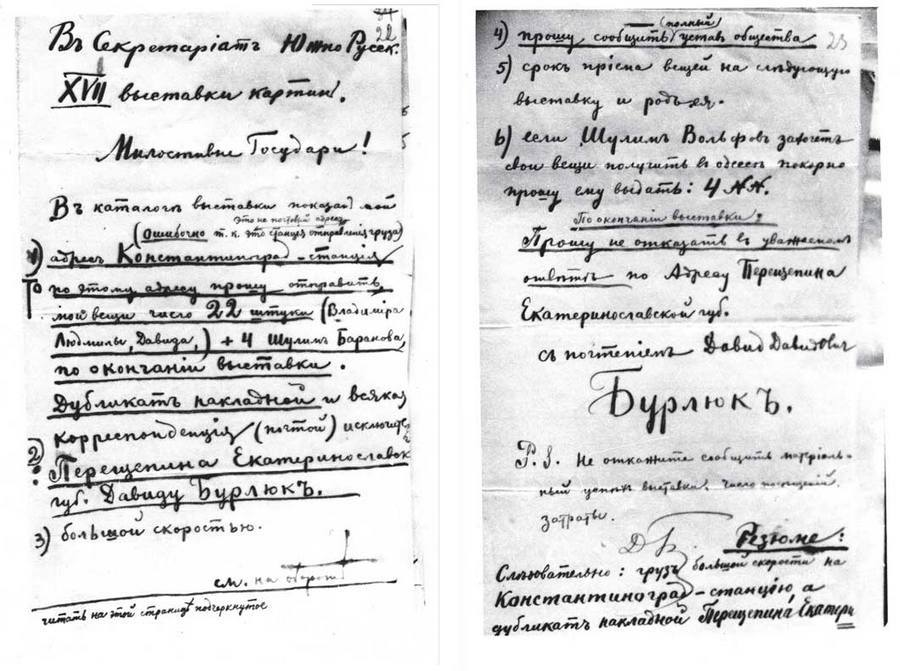 22
Въ Секретаріатъ Южно Русск.
XVII выставки картин.
Милостивые Государи!
Въ каталогѣ выставки показан мой
это не почтовый адресъ
(Ошибочно т. к. это станція отправленія груза)
1) адресъ Константиноград-станція
по этому адресу прошу отправить
мои вещи число 22 штуки (Владиміра
Людмилы, Давида,) + 4 Шулимъ Баранова
по окончаніи выставки.
Дубликатъ накладной и всякая
корреспонденція (почтой) исключит.
2) Перещепина Екатеринославск
губ. Давиду Бурлюкъ.
3) большой скоростью.
см. на оборотѣ
читать на этой страницѣ подчеркнутое
23
(полный)
4) прошу сообщить уставъ общества
5) срокъ пріема вещей на слѣдующую
выставку и родъ ея.
6) если Шулимъ Вольфовъ захочетъ
свои вещи получить в одессѣ покорно
прошу ему выдать: 4 NN.
По окончаніи выставки:
Прошу не отказать въ уважаемом
отвѣтѣ по Адресу Перещепина
Екатеринославской губ.
съ почтеніем Давид Давидович
Бурлюкъ.
P. S. Не откажите сообщить матеріаль-
ный успѣх выставки, число посещеній,
затраты.
ДБ
Резюме:
Слѣдовательно: грузъ большой скорости на
Константиноград-станцію, а
дубликатъ накладной Перещепина, Екатери